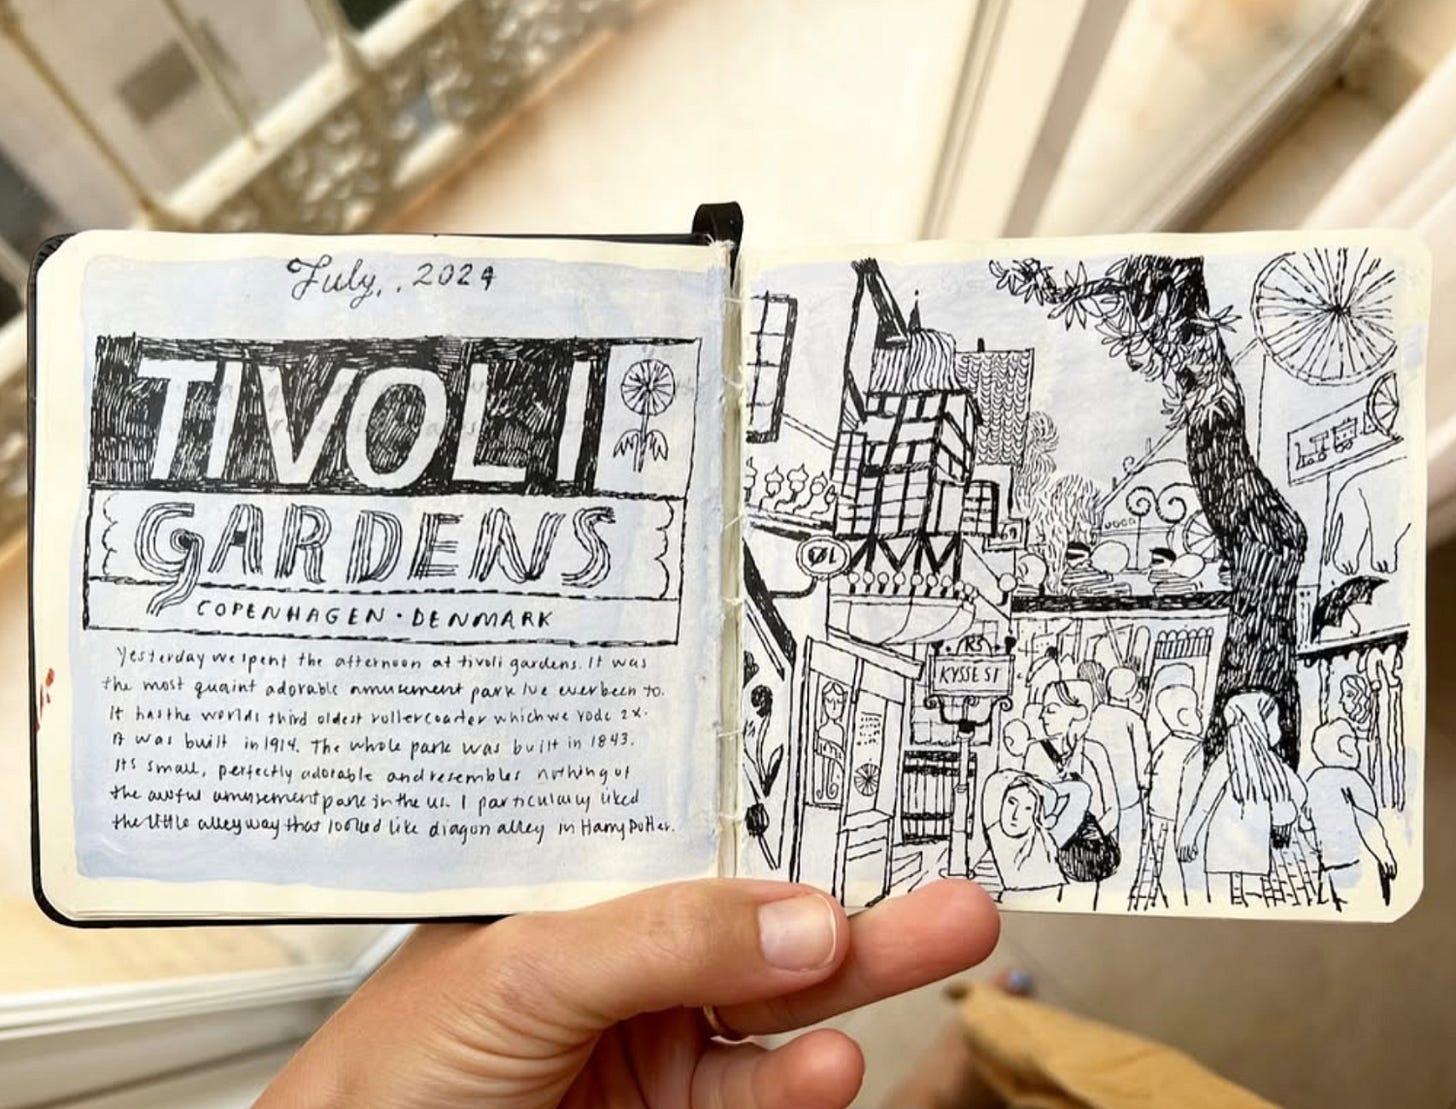 July, . 2024
TIVOLI
GARDENS
COPENHAGEN · DENMARK
Yesterday we spent the afternoon at tivoli gardens. It was
the most quaint adorable amusement park I've ever been to.
It has the worlds third oldest rollercoaster which we rode 2x.
It was built in 1914. The whole park was built in 1843.
Its small, perfectly adorable and resembles nothing of
the awful amusement park in the us. I particularly liked
the little alley way that looked like diagon alley in Harry Potter.
ØL
KS
KYSSESI